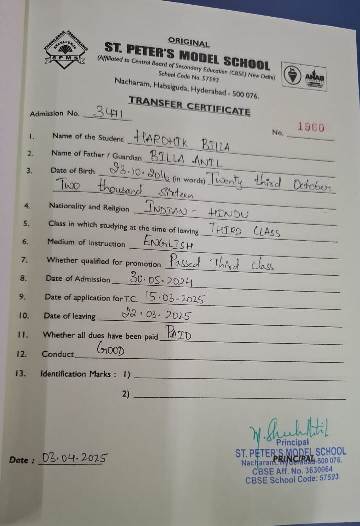 ORIGINAL
ST. PETER'S MODEL SCHOOL
(Affiliated to Central Board of Secondary Education (CBSE) New Delhi)
School Code No. 57593
Nacharam, Habsiguda, Hyderabad - 500 076.
S P M S
TRANSFER CERTIFICATE
Admission No. 3471
No. 1960
1. Name of the Student HARDHIK BILLA
2. Name of Father / Guardian BILLA ANIL
3. Date of Birth 23-10-2016 (in words) Twenty third October
Two thousand sixteen
4. Nationality and Religion INDIAN - HINDU
5. Class in which studying at the time of leaving THIRD CLASS
6. Medium of Instruction ENGLISH
7. Whether qualified for promotion Passed Third class
8. Date of Admission 30.05.2024
9. Date of application for T.C. 15-03-2025
10. Date of leaving 22.03.2025
11. Whether all dues have been paid PAID
12. Conduct GOOD
13. Identification Marks : 1)
2)
Principal
ST. PETER'S MODEL SCHOOL
PRINCIPAL
Nacharam, Hyderabad-500 076.
CBSE Aff. No. 3630064
CBSE School Code: 57593
Date : 03.04.2025